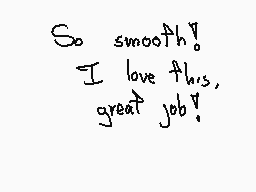 So smooth!
I love this,
great job!